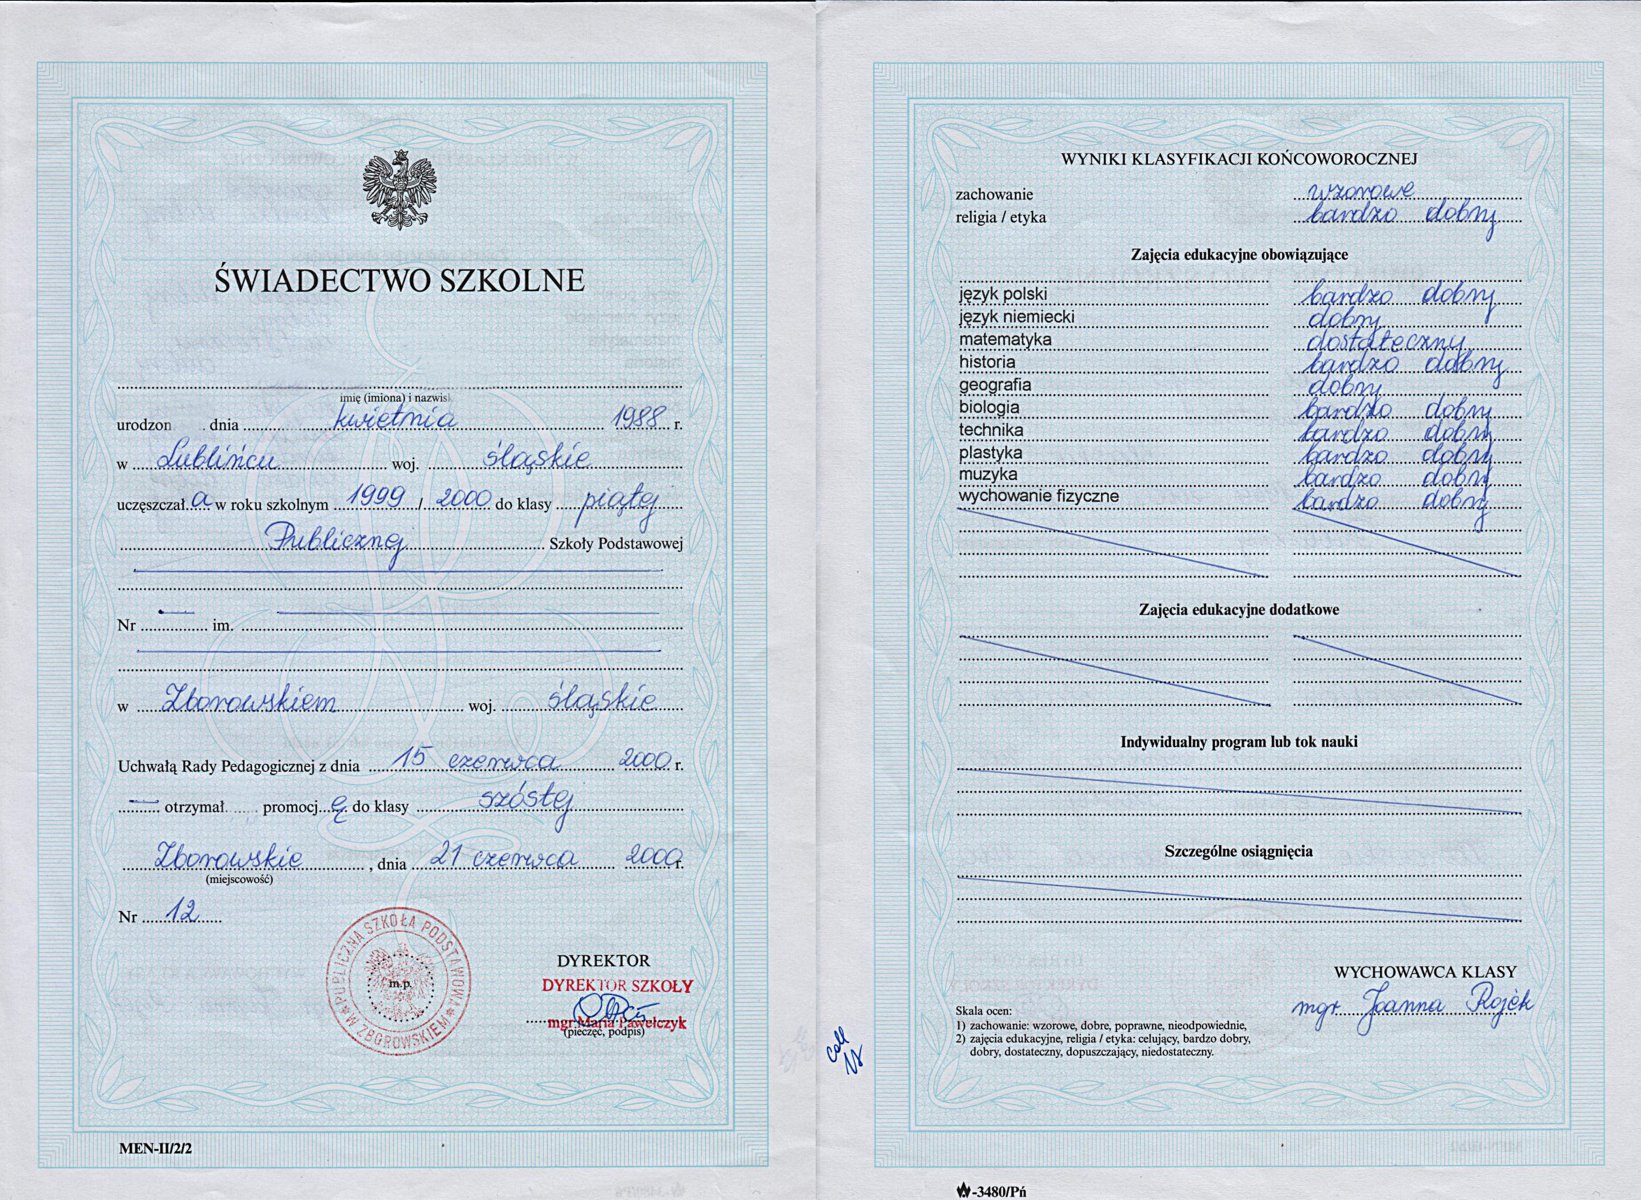 ŚWIADECTWO SZKOLNE
imię (imiona) i nazwisk
urodzon dnia kwietnia 1988 r.
w Lublińcu woj. śląskie
uczęszczał a w roku szkolnym 1999 / 2000 do klasy piątej
Publicznej Szkoły Podstawowej
Nr — im.
w Zborowskiem woj. śląskie
Uchwałą Rady Pedagogicznej z dnia 15 czerwca 2000 r.
— otrzymał promocj ę do klasy szóstej
Zborowskie , dnia 21 czerwca 2000 r.
(miejscowość)
Nr 12
PUBLICZNA SZKOŁA PODSTAWOWA
W ZBOROWSKIEM
m.p.
DYREKTOR
DYREKTOR SZKOŁY
mgr Maria Pawełczyk
(pieczęć, podpis)
MEN-II/2/2
WYNIKI KLASYFIKACJI KOŃCOWOROCZNEJ
zachowanie wzorowe
religia / etyka bardzo dobry
Zajęcia edukacyjne obowiązujące
język polski bardzo dobry
język niemiecki dobry
matematyka dostateczny
historia bardzo dobry
geografia dobry
biologia bardzo dobry
technika bardzo dobry
plastyka bardzo dobry
muzyka bardzo dobry
wychowanie fizyczne bardzo dobry
Zajęcia edukacyjne dodatkowe
Indywidualny program lub tok nauki
Szczególne osiągnięcia
WYCHOWAWCA KLASY
mgr Joanna Rojek
Skala ocen:
1) zachowanie: wzorowe, dobre, poprawne, nieodpowiednie,
2) zajęcia edukacyjne, religia / etyka: celujący, bardzo dobry,
dobry, dostateczny, dopuszczający, niedostateczny.
-3480/Pń